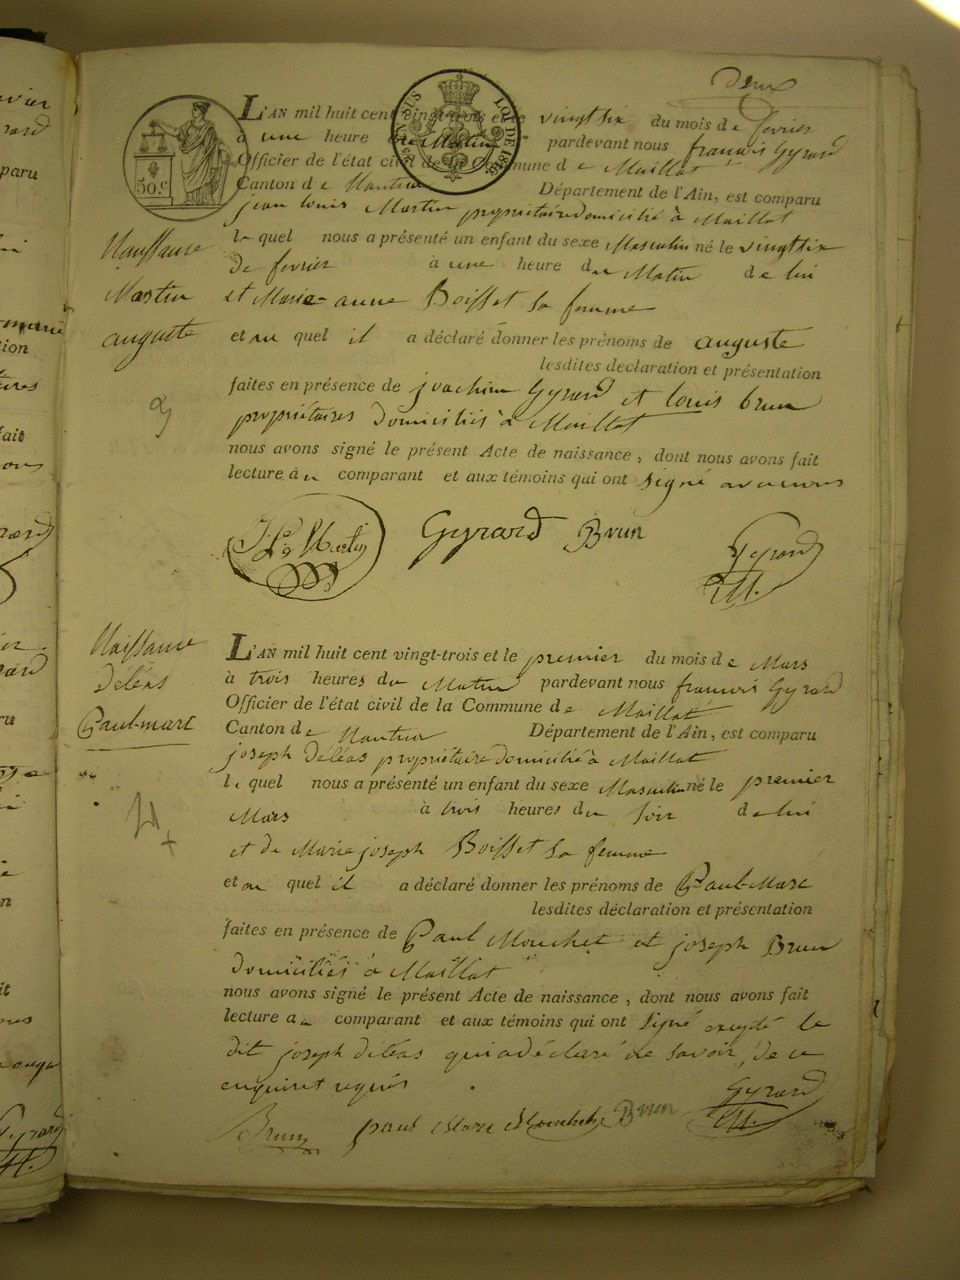 deux
L'AN mil huit cent vingt-trois et le vingt six du mois de fevrier
à une heure du Matin pardevant nous françois Gyrard
Officier de l'état civil de la Commune de Maillat
Canton de Nantua Département de l'Ain, est comparu
jean Louis Martin propriétaire domicilié à Maillat
lequel nous a présenté un enfant du sexe Masculin né le vingt six
de fevrier à une heure du Matin de lui
et Marie-anne Boisset sa femme
et au quel il a déclaré donner les prénoms de auguste
lesdites declaration et présentation
faites en présence de joachim Gyrard et louis brun
propriétaires domiciliés à Maillat
nous avons signé le présent Acte de naissance, dont nous avons fait
lecture au comparant et aux témoins qui ont signé avec nous
50.c
LOI DE 1816
Naissance
Martin
auguste
J. L. Martin Gyrard Brun Gyrard
M.
Naissance
Déléas
Paul-marc
L'AN mil huit cent vingt-trois et le premier du mois de Mars
à trois heures du Matin pardevant nous françois Gyrard
Officier de l'état civil de la Commune de Maillat
Canton de Nantua Département de l'Ain, est comparu
joseph Déléas propriétaire domicilié à Maillat
lequel nous a présenté un enfant du sexe Masculin né le premier
Mars à trois heures du soir de lui
et de Marie joseph Boisset sa femme
et au quel il a déclaré donner les prénoms de Paul-Marc
lesdites déclaration et présentation
faites en présence de Paul Mouchet et joseph Brun
domiciliés à Maillat
nous avons signé le présent Acte de naissance, dont nous avons fait
lecture au comparant et aux témoins qui ont signé excepté le
dit joseph Déléas qui a déclaré ne savoir, de ce
enquis et requis
Gyrard
Brun paul Marc Mouchet Brun M.